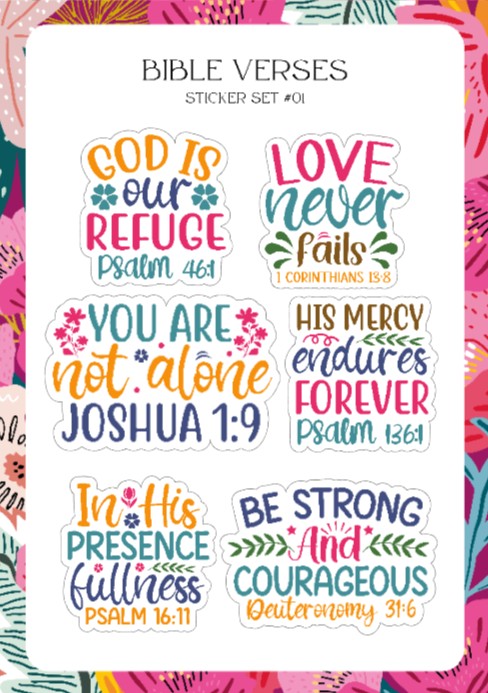 BIBLE VERSES
STICKER SET #01
GOD IS
our
REFUGE
Psalm 46:1
LOVE
never
fails
1 CORINTHIANS 13:8
YOU ARE
not alone
JOSHUA 1:9
HIS MERCY
endures
FOREVER
Psalm 136:1
In His
PRESENCE
fullness
PSALM 16:11
BE STRONG
And
COURAGEOUS
Deuteronomy 31:6